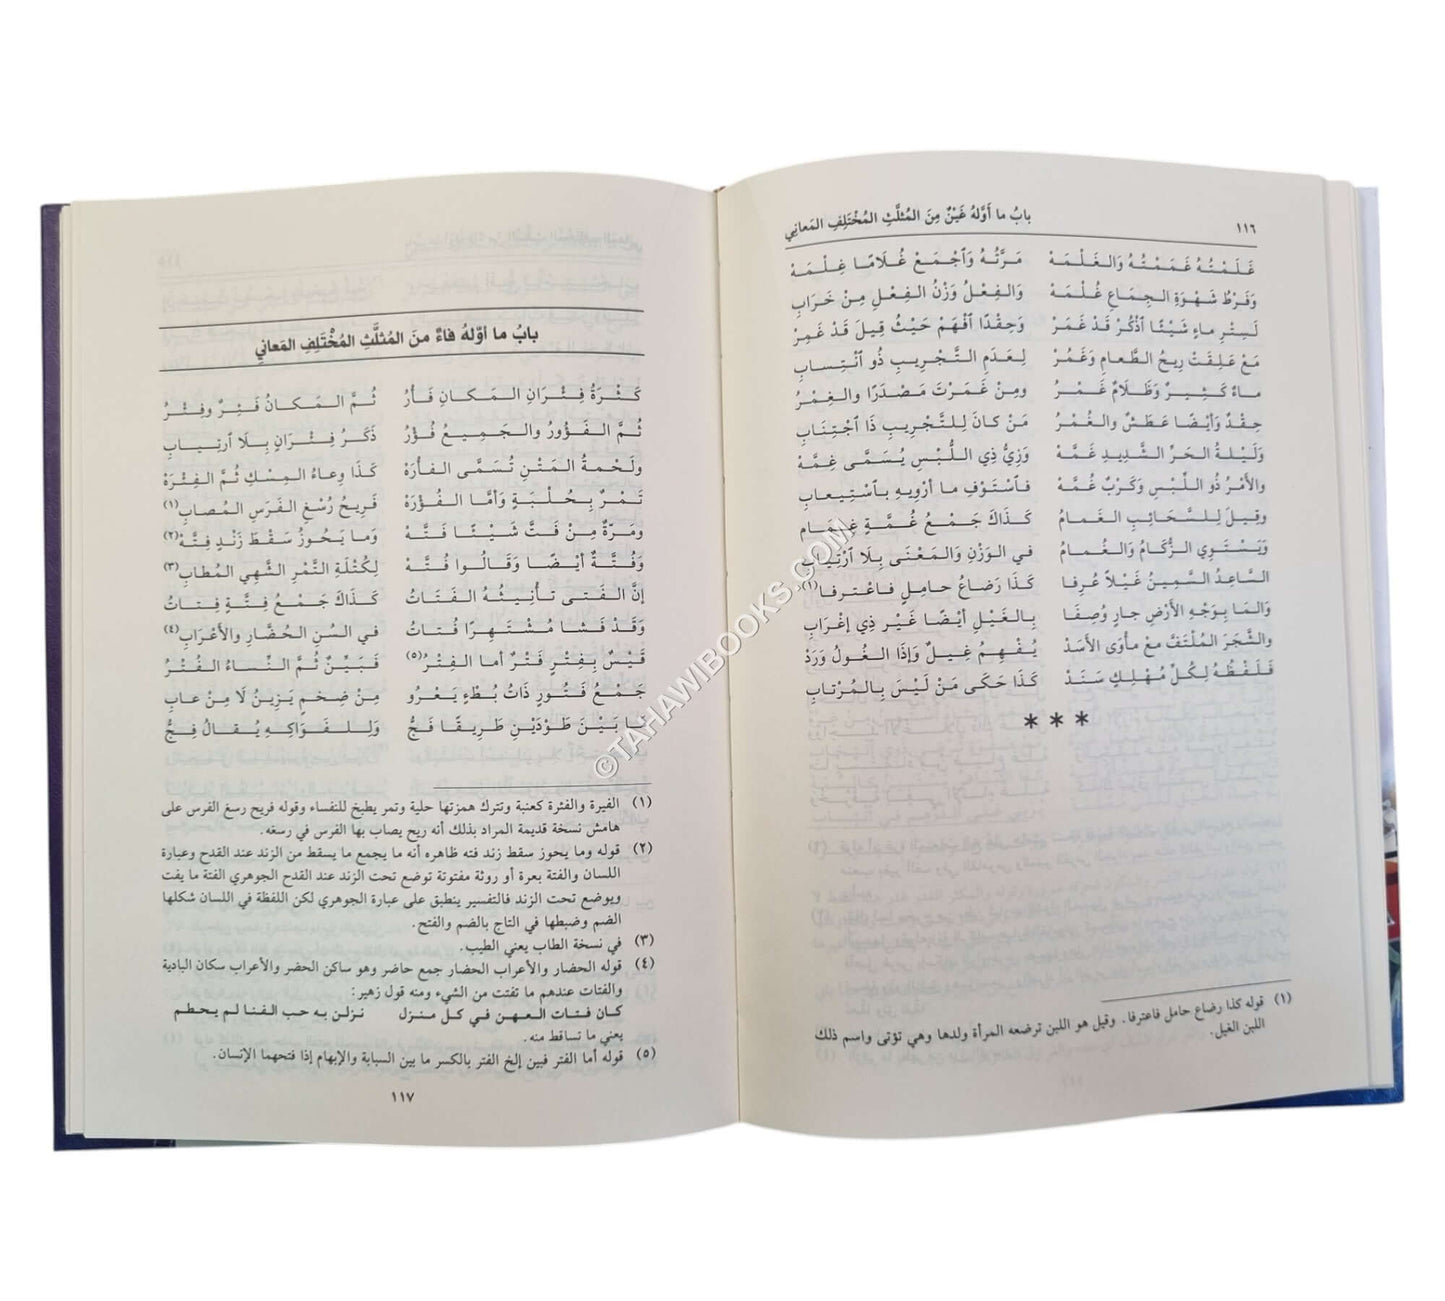 ١١٦ بابُ ما أَوَّلهُ غَيْنٌ مِنَ المُثلَّثِ المُخْتَلِفِ المَعانِي
غَلَمْتُهُ غَمَمْتُهُ وَالغَلْمَهْ مَرَّتُهُ وَٱجْمَعْ غُلَامًا غِلْمَهْ
وَفَرْطُ شَهْوَةِ الجِمَاعِ غُلْمَهْ وَالفِعْلُ وَزْنُ الفِعْلِ مِنْ خَرَابِ
لَسِتْرِ ماءٍ شَيْئًا ٱذْكُرْ قَدْ غَمَرْ وَحِقْدًا ٱفْهَمْ حَيْثُ قِيلَ قَدْ غَمِرْ
مَعْ عَلِقَتْ رِيحُ الطَّعامِ وَغَمُرْ لِعَدَمِ التَّجْرِيبِ ذُو ٱنْتِسابِ
ماءٌ كَثِيرٌ وَظَلَامٌ غَمْرُ ومِنْ غَمَرْتَ مَصْدَرًا والغِمْرُ
حِقْدٌ وَأَيْضًا عَطَشٌ والغُمْرُ مَنْ كانَ لِلتَّجْرِيبِ ذَا ٱجْتِنَابِ
وَلَيْلةُ الحَرِّ الشَّدِيدِ غَمَّهْ وَزِيُّ ذِي اللُّبْسِ يُسَمَّى غِمَّهْ
والأَمْرُ ذُو اللَّبْسِ وَكَرْبٌ غُمَّهْ فٱسْتَوْفِ ما أَرْوِيهِ بٱسْتِيعابِ
وقِيلَ لِلسَّحَائِبِ الغَمامُ كَذَاكَ جَمْعُ غُمَّةٍ غِمَام
وَيَسْتَوِي الزُّكَامُ وَالغُمامُ في الوَزْنِ وَالمَعْنَى بِلَا ٱرْتِيابِ
السَّاعِدُ السَّمِينُ غَيْلاً عُرِفا كَذا رَضاعُ حامِلٍ فاعْتَرفا(١)
وَالمَا بِوَجْهِ الأَرْضِ جارٍ وُصِفَا بِالغَيْلِ أيْضًا غَيْر ذِي إغْرَابِ
والشَّجَر المُلْتَفَّ مَعْ مأوَى الأَسَدْ يُفْهِمُ غِيلٌ وَإذَا الغُولُ وَرَدْ
فَلَفْظُهُ لِكُلِّ مُهْلِكٍ سَنَدْ كَذا حَكَى مَنْ لَيْسَ بِالمُرْتابِ
* * *
(١) قوله كذا رضاع حامل فاعترفا. وقيل هو اللبن ترضعه المرأة ولدها وهي تؤتى واسم ذلك
اللبن الغيل.
بابُ ما أوّلهُ فاءٌ منَ المُثلَّثِ المُخْتَلِفِ المَعاني
كَثْرَةُ فِئْرَانِ المَكانِ فَأْرُ ثُمَّ المَكانُ فَئِرٌ وفِئْرُ
ثُمَّ الفَؤُورُ والجَمِيعُ فُؤْرُ ذَكَرُ فِئْرَانٍ بِلَا ٱرتِيابِ
ولَحْمةُ المَتْنِ تُسَمَّى الفأرَهْ كَذَا وِعاءُ المِسْكِ ثُمَّ الفِئرَهْ
تَمْرٌ بِحُلْبَةٍ وَأمَّا الفُؤْرَهْ فَرِيحُ رُسْغِ الفَرَسِ المُصابِ(١)
ومَرّةٌ مِنْ فَتَّ شَيْئًا فَتَّهْ وَما يَحُوزُ سَقْطَ زَنْدٍ فِتَّهْ(٢)
وَفُتَّةٌ أيْضًا وَقَالُوا فُتَّهْ لِكُتْلَةِ التَّمْرِ الشَّهِي المُطابِ(٣)
إنَّ الفَتى تأنِيثُهُ الفَتَاتُ كَذَاكَ جَمْعُ فِتَّةٍ فِتاتُ
وَقَدْ فَشا مُشْتَهِرًا فُتاتُ في السُنِ الحُضَّارِ والأَعْرَابِ(٤)
قَيْسٌ بِفِتْرٍ فَتْرٌ أما الفِتْرُ(٥) فَبَيِّنٌ ثُمَّ النِّساءُ الفُتْرُ
جَمْعُ فَتُورٍ ذَاتُ بُطْءٍ يَعْرُو مِنْ ضِخَمٍ يَزِينُ لَا مِنْ عابِ
ما بَيْنَ طَوْدَيْنِ طَرِيقًا فَجُّ وَلِلفَوَاكِهِ يُقالُ فِجُّ
(١) الفيرة والفئرة كعنبة وتترك همزتها حلبة وتمر يطبخ للنفساء وقوله فريح رسغ الفرس على
هامش نسخة قديمة المراد بذلك أنه ريح يصاب بها الفرس في رسغه.
(٢) قوله وما يحوز سقط زند فته ظاهره أنه ما يجمع ما يسقط من الزند عند القدح وعبارة
اللسان والفتة بعرة أو روثة مفتوتة توضع تحت الزند عند القدح الجوهري الفتة ما يفت
ويوضع تحت الزند فالتفسير ينطبق على عبارة الجوهري لكن اللفظة في اللسان شكلها
الضم وضبطها في التاج بالضم والفتح.
(٣) في نسخة الطاب يعني الطيب.
(٤) قوله الحضار والأعراب الحضار جمع حاضر وهو ساكن الحضر والأعراب سكان البادية
والفتات عندهم ما تفتت من الشيء ومنه قول زهير:
كان فتات العهن في كل منزل نزلن به حب الفنا لم يحطم
يعني ما تساقط منه.
(٥) قوله أما الفتر فبين إلخ الفتر بالكسر ما بين السبابة والإبهام إذا فتحهما الإنسان.
١١٧
©TAHAWIBOOKS.COM